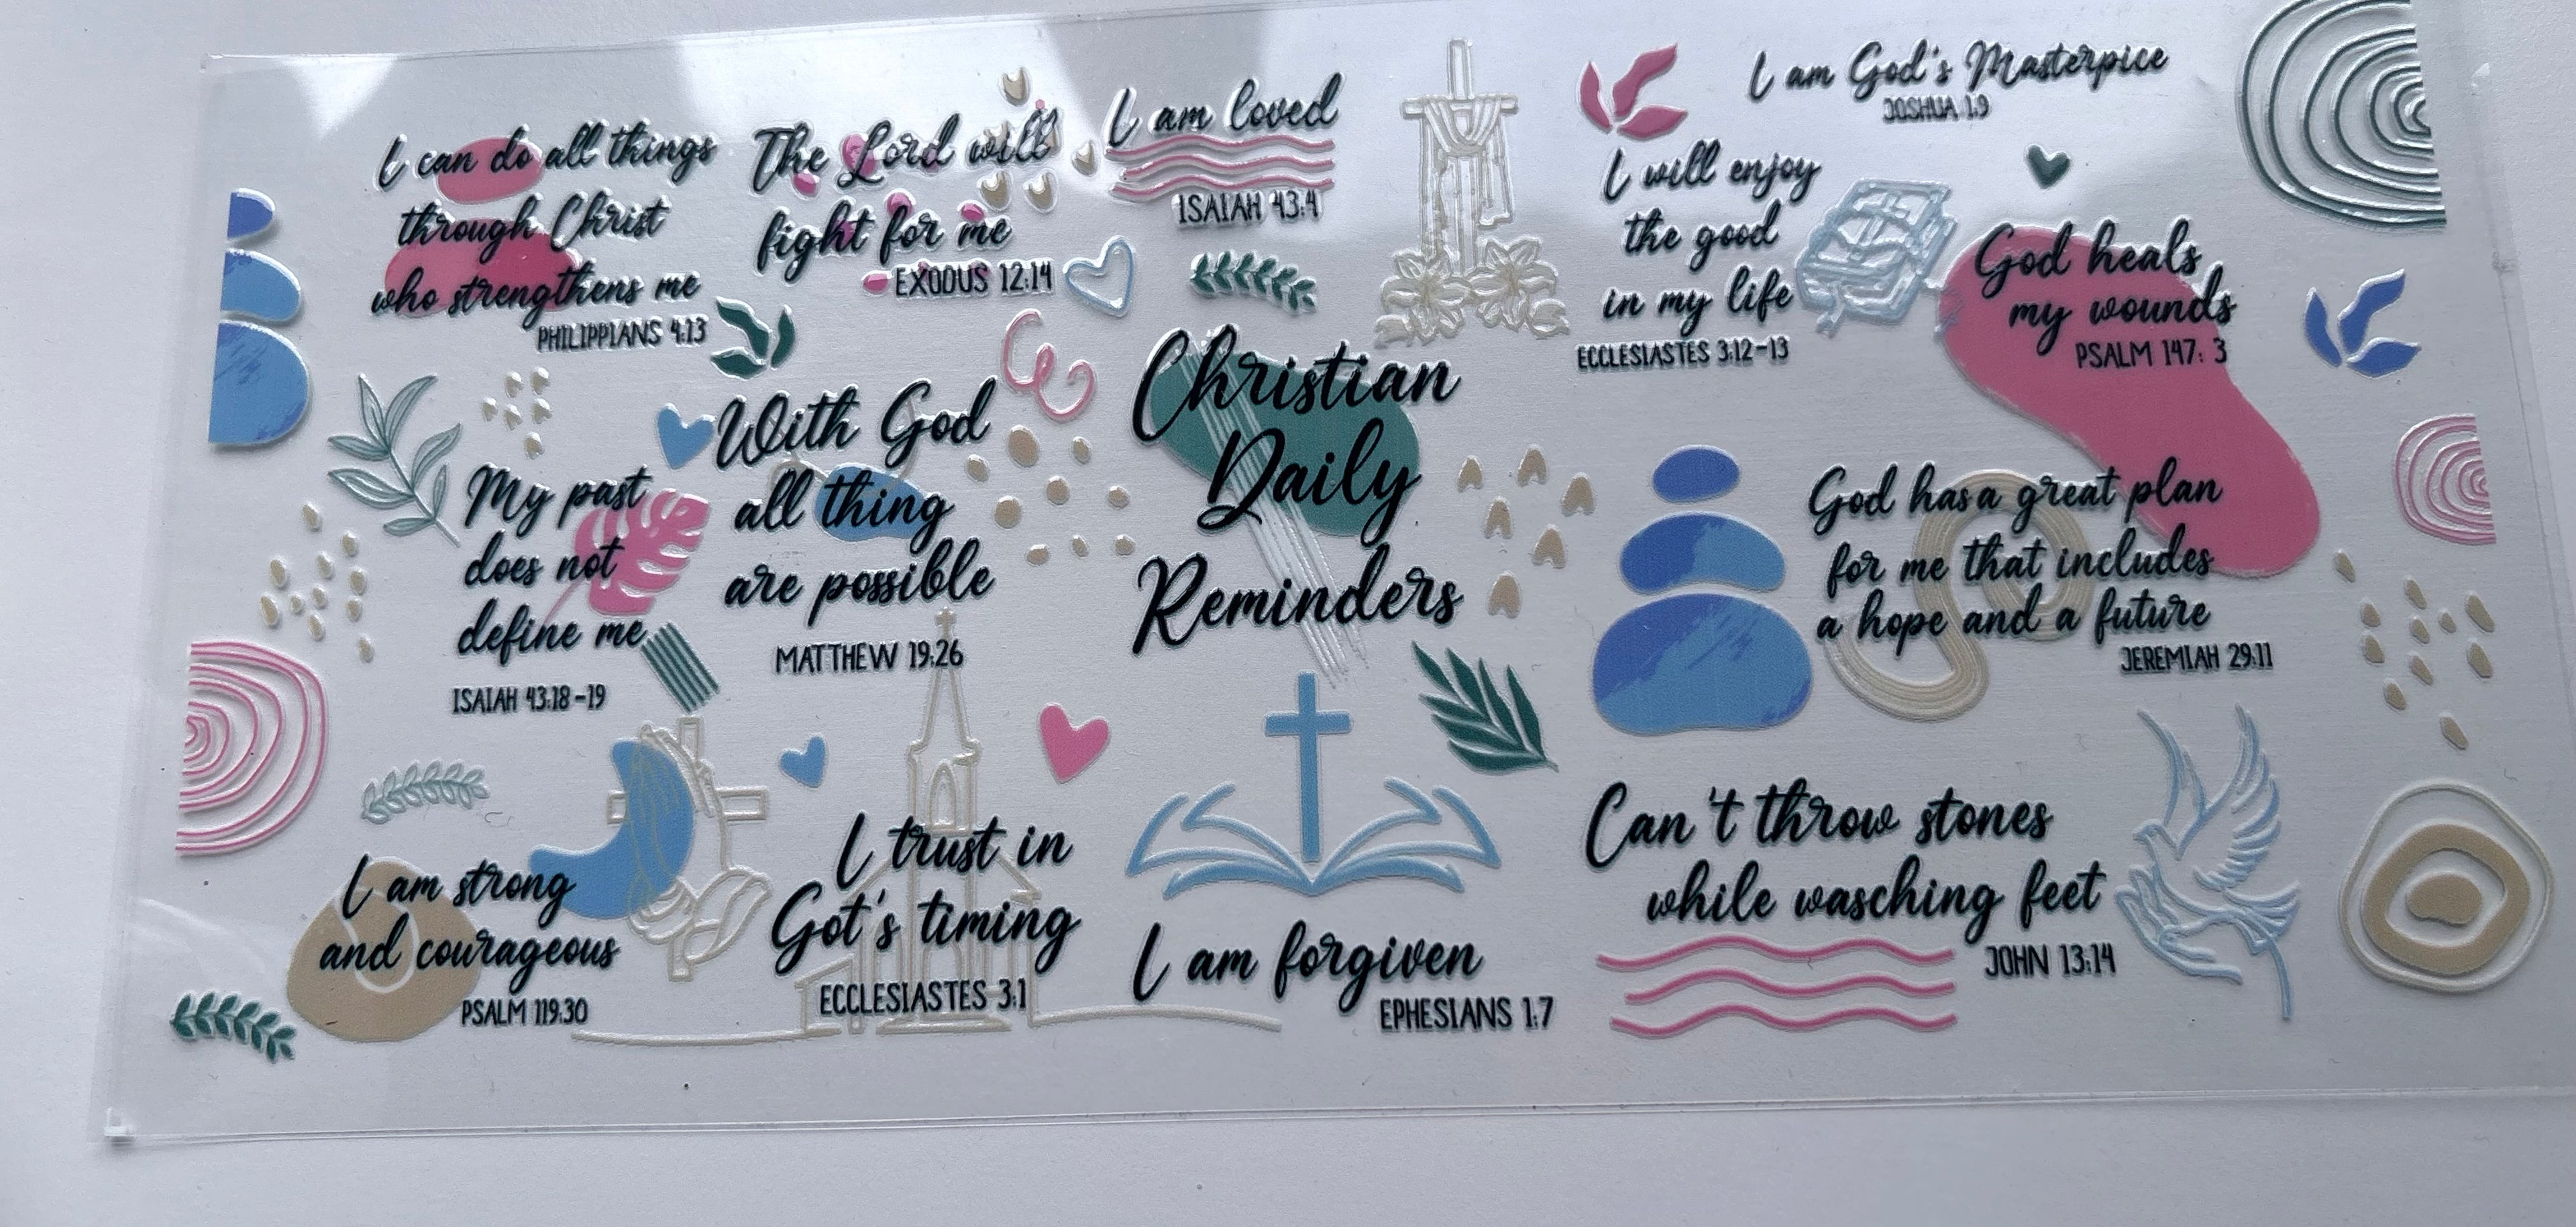 I can do all things
through Christ
who strengthens me
PHILIPPIANS 4:13
The Lord will
fight for me
EXODUS 12:14
I am loved
ISAIAH 43:4
I am God's Masterpice
JOSHUA 1:9
I will enjoy
the good
in my life
ECCLESIASTES 3:12-13
God heals
my wounds
PSALM 147: 3
My past
does not
define me
ISAIAH 43:18-19
With God
all thing
are possible
MATTHEW 19:26
Christian
Daily
Reminders
God has a great plan
for me that includes
a hope and a future
JEREMIAH 29:11
I am strong
and courageous
PSALM 119:30
I trust in
Got's timing
ECCLESIASTES 3:1
I am forgiven
EPHESIANS 1:7
Can't throw stones
while wasching feet
JOHN 13:14